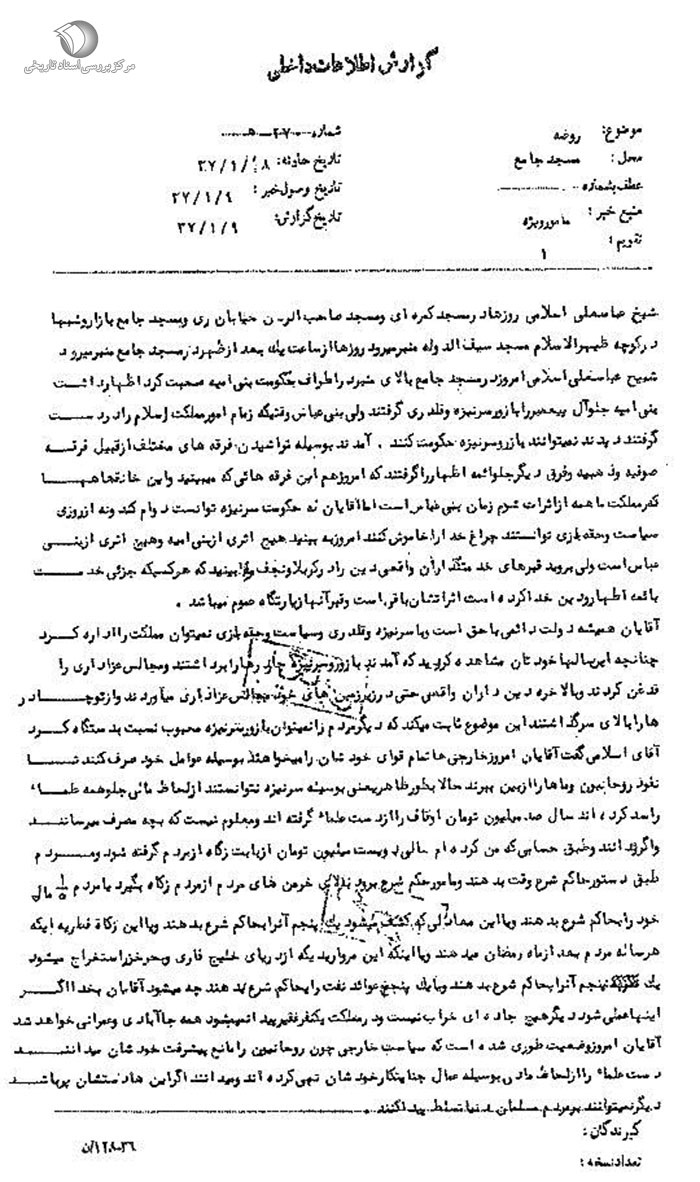 مرکز بررسی اسناد تاریخی
گزارش اطلاعات داخلی
موضوع: روضه
محل: مسجد جامع
عطف بشماره
منبع خبر: مامور ویژه
تقویم: ۱
شماره
تاریخ حادثه: ۳۷/۱/۸
تاریخ وصول خبر: ۳۷/۱/۹
تاریخ گزارش: ۳۷/۱/۹
شیخ عباسعلی اسلامی روزها در مسجد کمره ای و مسجد صاحب الزمان خیابان ری و مسجد جامع بازار و شبها
در کوچه ظهیرالاسلام مسجد سیف الدوله منبر میرود روزها از ساعت یک بعد از ظهر در مسجد جامع منبر میرود
شیخ عباسعلی اسلامی امروز در مسجد جامع بالای منبر در اطراف حکومت بنی امیه صحبت کرد اظهار داشت
بنی امیه جلو آل پیغمبر را با زور سرنیزه و قلدری گرفتند ولی بنی عباس وقتیکه زمام امور مملکت اسلام را در دست
گرفتند دیدند نمیتوانند با زور سرنیزه حکومت کنند. آمدند بوسیله تراشیدن فرقه های مختلف از قبیل فرقه
صوفیه و ذهبیه و فرق دیگر جلو ائمه اطهار را گرفتند که امروز هم این فرقه هائی که میبینید و این خانقاهها
که در مملکت ما همه از اثرات شوم زمان بنی عباس است اما آقایان نه حکومت سرنیزه توانست دوام کند و نه از روزی
سیاست و حقه بازی توانستند چراغ خدا را خاموش کنند امروز به بینید هیچ اثری از بنی امیه و هیچ اثری از بنی
عباس است ولی بروید قبرهای خدمتگذاران واقعی دین را در کربلا و نجف به بینید که هر کسیکه جزئی خدمت
بائمه اطهار و دین خدا کرده است اثراتشان باقی است و قبر آنها زیارتگاه عموم میباشد.
آقایان همیشه دولت دائمی با حق است و با سرنیزه و قلدری و سیاست و حقه بازی نمیتوان مملکت را اداره کرد
چنانچه این سالها خودتان مشاهده کردید که آمدند با زور و سرنیزه چادرها را برداشتند و مجالس عزاداری را
قدغن کردند و بالاخره دین داران واقعی حتی در زیرزمین های خود مجالس عزاداری میآوردند و از نو چادر
ها را بالای سر گذاشتند این موضوع ثابت میکند که دیگر مردم را نمیتوان با زور سرنیزه محبوب نسبت بدستگاه کرد
آقای اسلامی گفت آقایان امروز خارجی ها تمام قوای خودشان را میخواهند بوسیله عوامل خود صرف کنند تا
نفوذ روحانیون و ماها را از بین ببرند حالا بطور ظاهر یعنی بوسیله سرنیزه نتوانستند از لحاظ مالی جلو همه علماء
را سد کرده اند سال صد میلیون تومان اوقاف را از دست علماء گرفته اند و معلوم نیست که بچه مصرف میرسانند
واگردانند و طبق حسابی که من کرده ام سالی دویست میلیون تومان از بابت زکاة از مردم گرفته شود و مردم
طبق دستور حاکم شرع وقت بدهند و مامور حاکم شرع برود خرمن های مردم از مردم زکاة بگیرد یا مردم مال
خود را بحاکم شرع بدهند و یا این معادنی که کشف میشود یک پنجم آنرا بحاکم شرع بدهند و یا این زکاة فطریه ایکه
هرساله مردم بعد از ماه رمضان میدهند و یا اینکه این مرواریدیکه از دریای خلیج فارس و بحر خزر استخراج میشود
یک پنجم آنرا بحاکم شرع بدهند و یا یک پنجم عوائد نفت را بحاکم شرع بدهند چه میشود آقایان بخدا اگر
اینها عملی شود دیگر هیچ جاده ای خراب نیست و در مملکت یکنفر فقیر پیدا نمیشود همه جا آبادی و عمرانی خواهد شد
آقایان امروز وضعیت طوری شده است که سیاست خارجی چون روحانیون را مانع پیشرفت خودشان میدانند
دست علماء را از لحاظ مادی بوسیله عمال جنایتکار خودشان تهی کرده اند و میدانند اگر این ها دستشان پر باشد
دیگر نمیتوانند بر مردم مسلمان دنیا تسلط پیدا کنند.
گیرندگان:
تعداد نسخه: